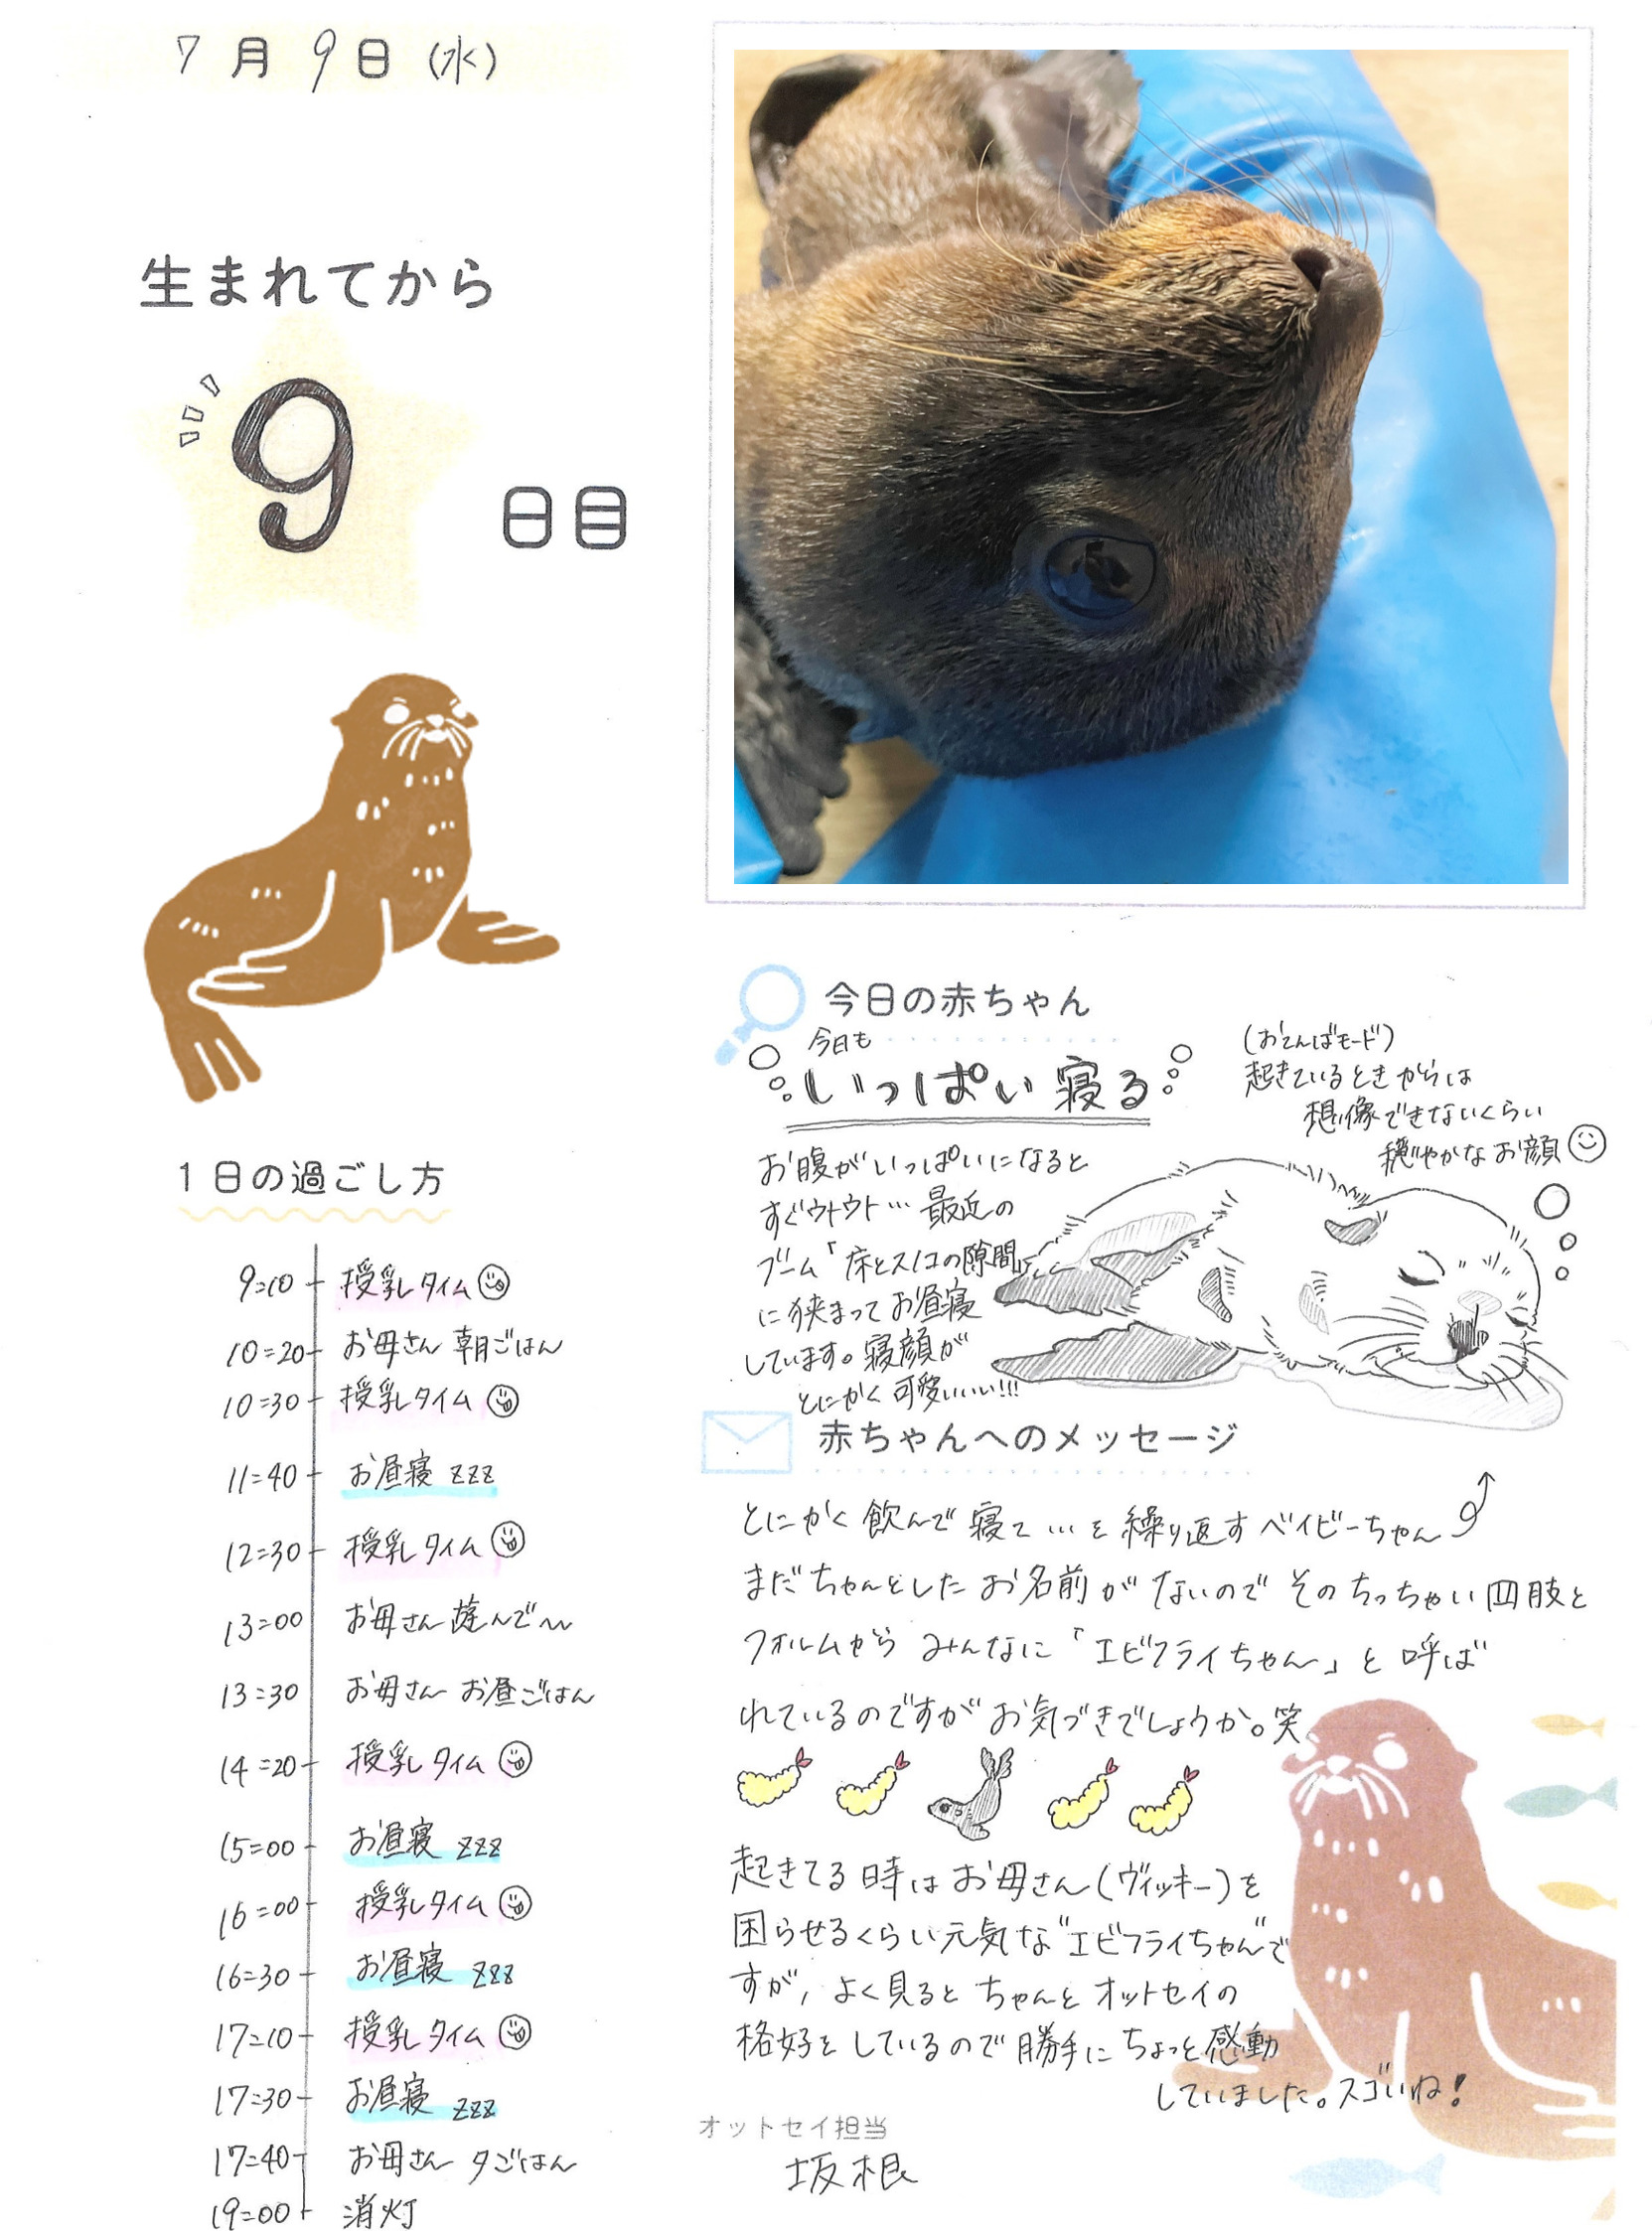 7月9日(水)
生まれてから
9
日目
1日の過ごし方
9:10 授乳タイム
10:20 お母さん 朝ごはん
10:30 授乳タイム
11:40 お昼寝 zzz
12:30 授乳タイム
13:00 お母さん 遊んで〜
13:30 お母さん お昼ごはん
14:20 授乳タイム
15:00 お昼寝 zzz
16:00 授乳タイム
16:30 お昼寝 zzz
17:10 授乳タイム
17:30 お昼寝 zzz
17:40 お母さん 夕ごはん
19:00 消灯
今日の赤ちゃん
今日も
いっぱい寝る
お腹がいっぱいになると
すぐウトウト…最近の
ブーム「床とスノコの隙間」
に挟まってお昼寝
しています。寝顔が
とにかく可愛いいい!!!
(おてんばモード)
起きているときからは
想像できないくらい
穏やかなお顔
赤ちゃんへのメッセージ
とにかく飲んで寝て…を繰り返すベイビーちゃん
まだちゃんとしたお名前がないのでそのちっちゃい四肢と
フォルムからみんなに「エビフライちゃん」と呼ば
れているのですがお気づきでしょうか。笑
起きてる時はお母さん(ヴィッキー)を
困らせるくらい元気な"エビフライちゃん"で
すが、よく見るとちゃんとオットセイの
格好をしているので勝手にちょっと感動
していました。スゴいね!
オットセイ担当
坂根